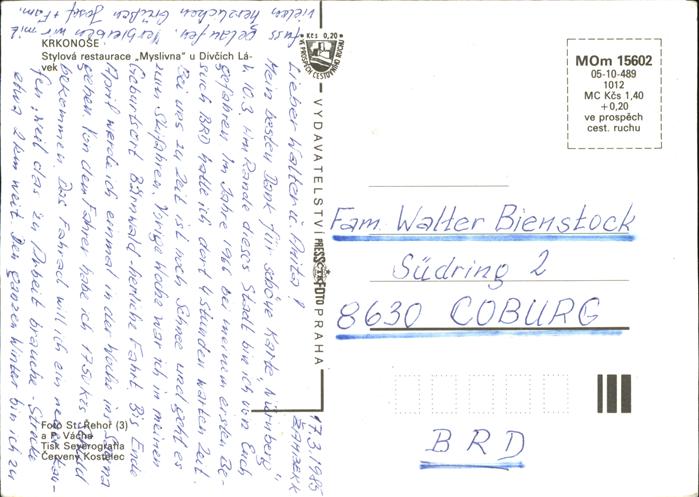 KRKONOŠE
Stylová restaurace „Myslivna" u Dívčích Lá-
vek
Kčs 0,20
VE PROSPĚCH CESTOVNÍHO RUCHU
MOm 15602
05-10-489
1012
MC Kčs 1,40
+0,20
ve prospěch
cest. ruchu
VYDAVATELSTVÍ PRESSFOTO PRAHA
17.3.1985
ŽAMBERK
Lieber Walter u. Anita!
Mein besten Dank für schöne Karte „Nürnberg"
v. 10.3. Am Rande dieses Stadt bin ich von Euch
gefahren. Im Jahre 1966 bei meinem ersten Be-
such BRD hatte ich dort 4 Stunden warten Zeit.
Bei uns zu Zeit ist noch Schnee und geht es
zum Skifahren. Vorige Woche war ich in meinen
Geburtsort Bärnwald herliche Fahrt. Bis Ende
April werde ich einmal in der Woche in
gehen. Von dem Fahrer habe ich 750 Kčs
bekommen. Das Fahrrad will ich ein neues kau-
fen, weil das zu Arbeit brauche - Strecke
etwa 2 km weit. Den ganzen Winter bin ich zu
fuss gelaufen. Verbleiben wir mit
vielen herzlichen Grüßen Josef + Fam.
Fam. Walter Bienstock
Südring 2
8630 COBURG
BRD
Foto St. Řehoř (3)
a P. Vácha
Tisk Severografia
Červený Kostelec